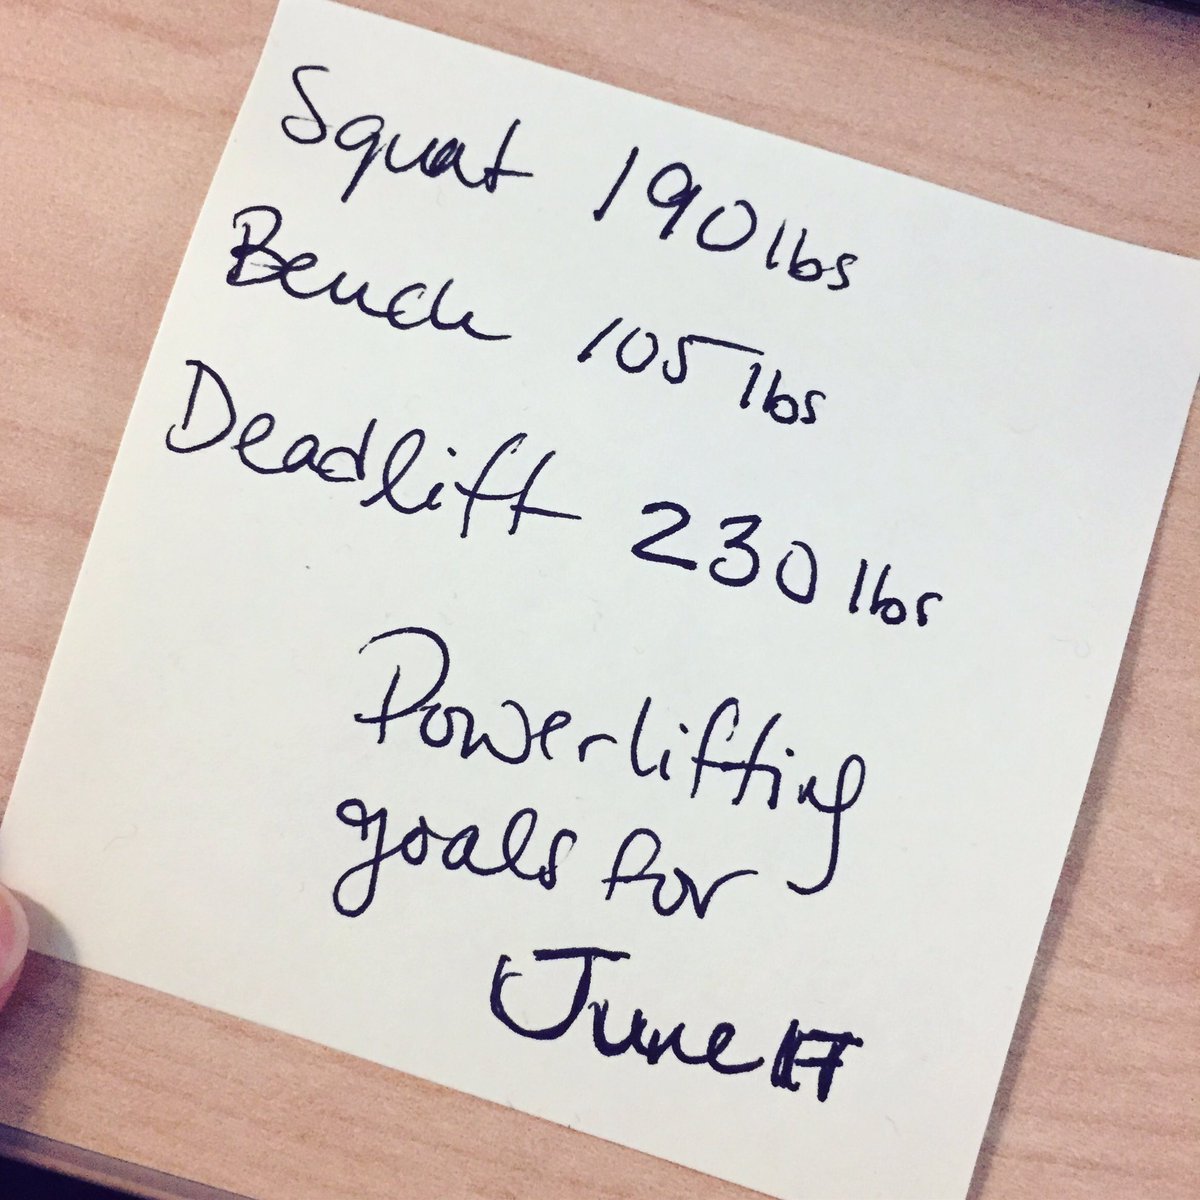 Squat 190 lbs
Bench 105 lbs
Deadlift 230 lbs
Powerlifting
goals for
June 17